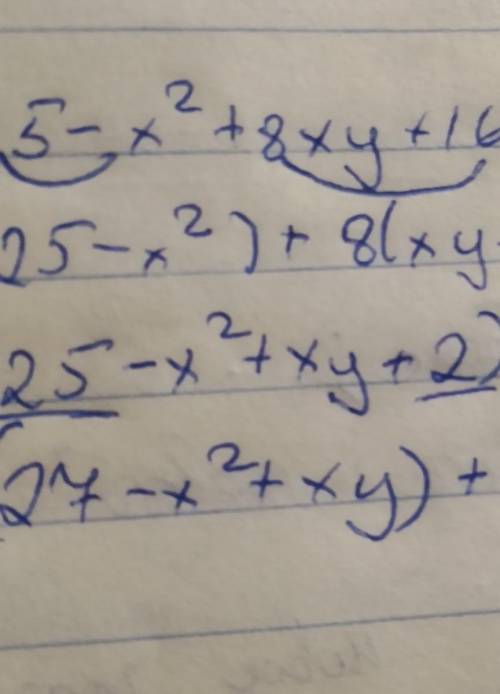 5-x²+8xy+16
25-x²)+8(xy
25-x²+xy+2)
(27-x²+xy)+